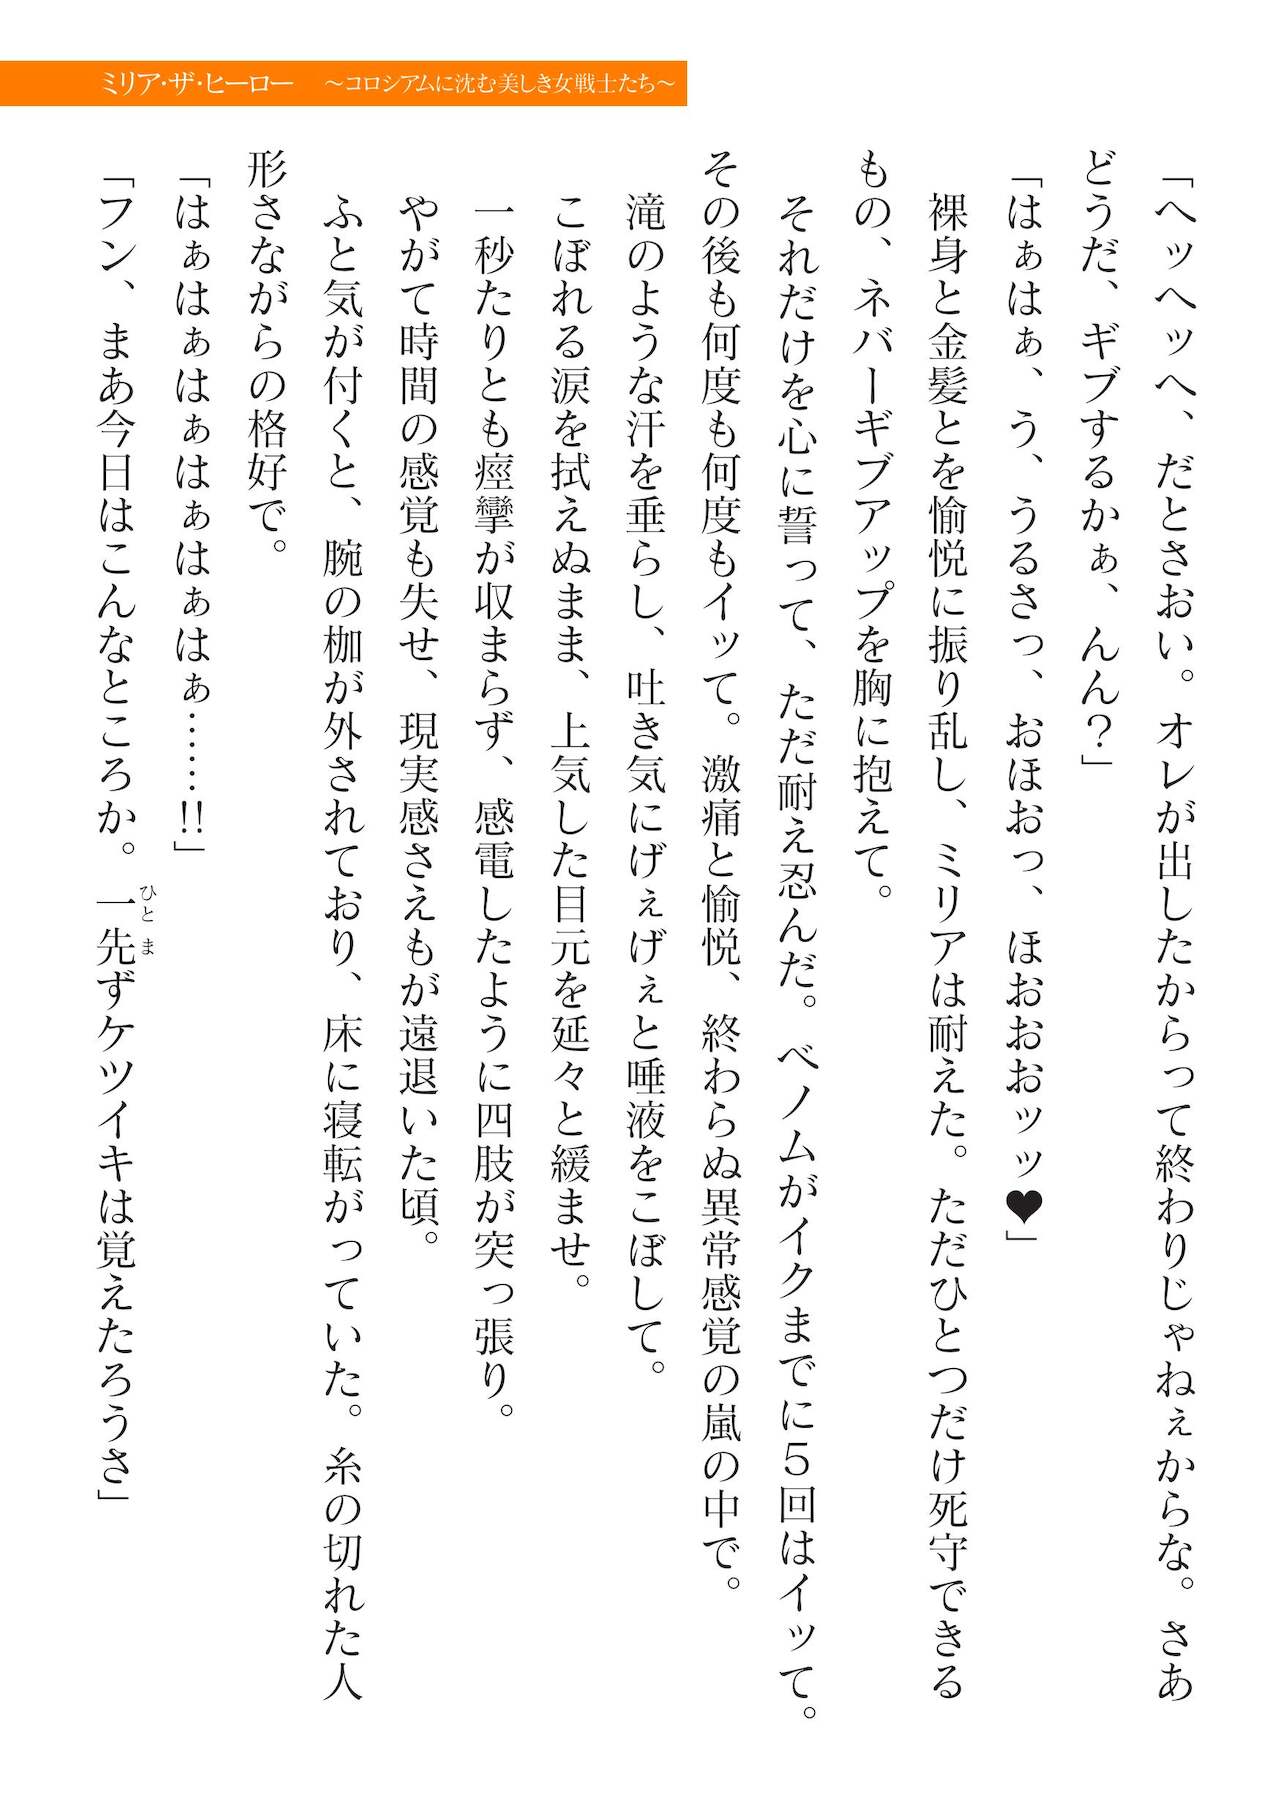 ミリア・ザ・ヒーロー　～コロシアムに沈む美しき女戦士たち～
「ヘッヘッヘ、だとさおい。オレが出したからって終わりじゃねぇからな。さあ
どうだ、ギブするかぁ、んん？」
「はぁはぁ、う、うるさっ、おほおっ、ほおおおッッ♥」
　裸身と金髪とを愉悦に振り乱し、ミリアは耐えた。ただひとつだけ死守できる
もの、ネバーギブアップを胸に抱えて。
　それだけを心に誓って、ただ耐え忍んだ。ベノムがイクまでに５回はイッて。
その後も何度も何度もイッて。激痛と愉悦、終わらぬ異常感覚の嵐の中で。
　滝のような汗を垂らし、吐き気にげぇげぇと唾液をこぼして。
　こぼれる涙を拭えぬまま、上気した目元を延々と緩ませ。
　一秒たりとも痙攣が収まらず、感電したように四肢が突っ張り。
　やがて時間の感覚も失せ、現実感さえもが遠退いた頃。
　ふと気が付くと、腕の枷が外されており、床に寝転がっていた。糸の切れた人
形さながらの格好で。
「はぁはぁはぁはぁはぁはぁ……!!」
「フン、まあ今日はこんなところか。一先ずケツイキは覚えたろうさ」
ひとま